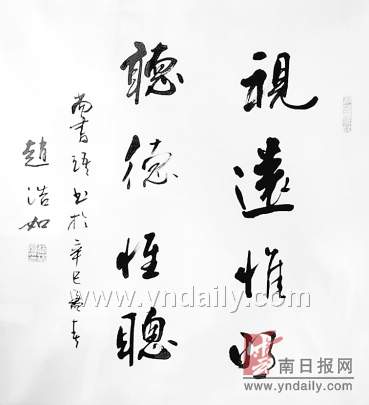 視遠惟明
聽德惟聰
尚書語 书於辛巳暮春
趙浩如
www.yndaily.com
雲南日报网
www.yndaily.com